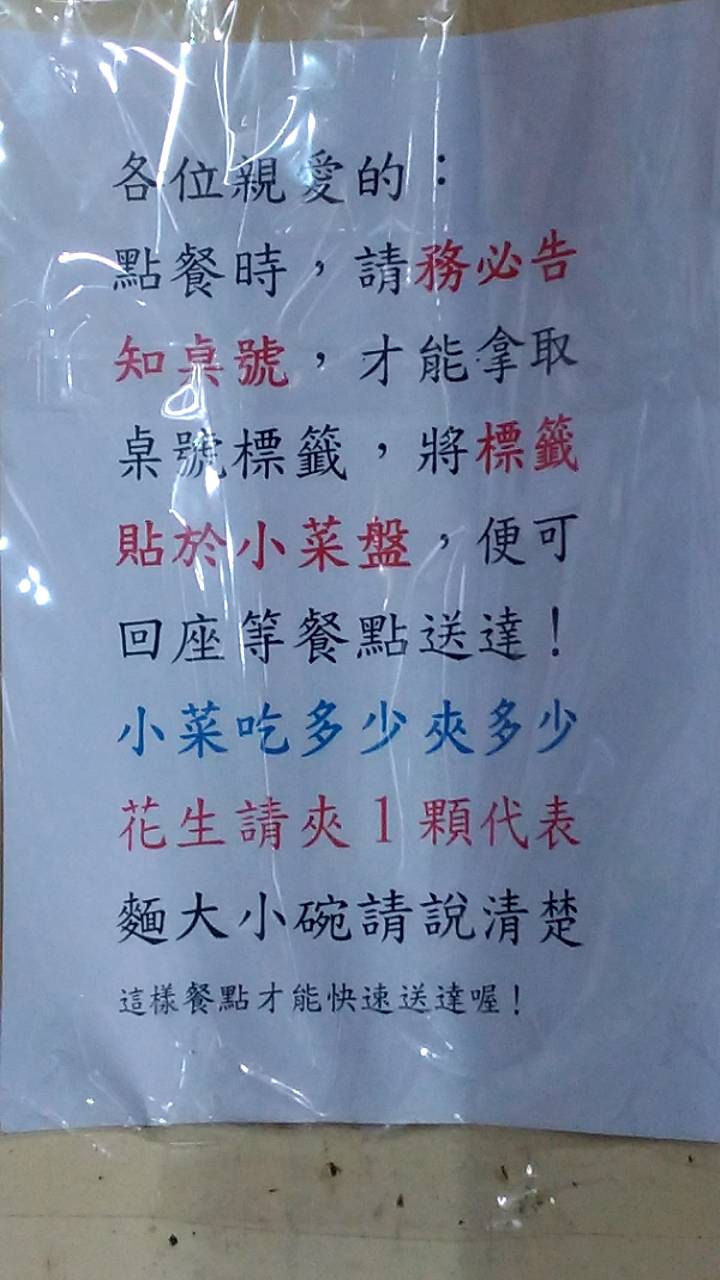 各位親愛的：
點餐時，請務必告
知桌號，才能拿取
桌號標籤，將標籤
貼於小菜盤，便可
回座等餐點送達！
小菜吃多少夾多少
花生請夾1顆代表
麵大小碗請說清楚
這樣餐點才能快速送達喔！